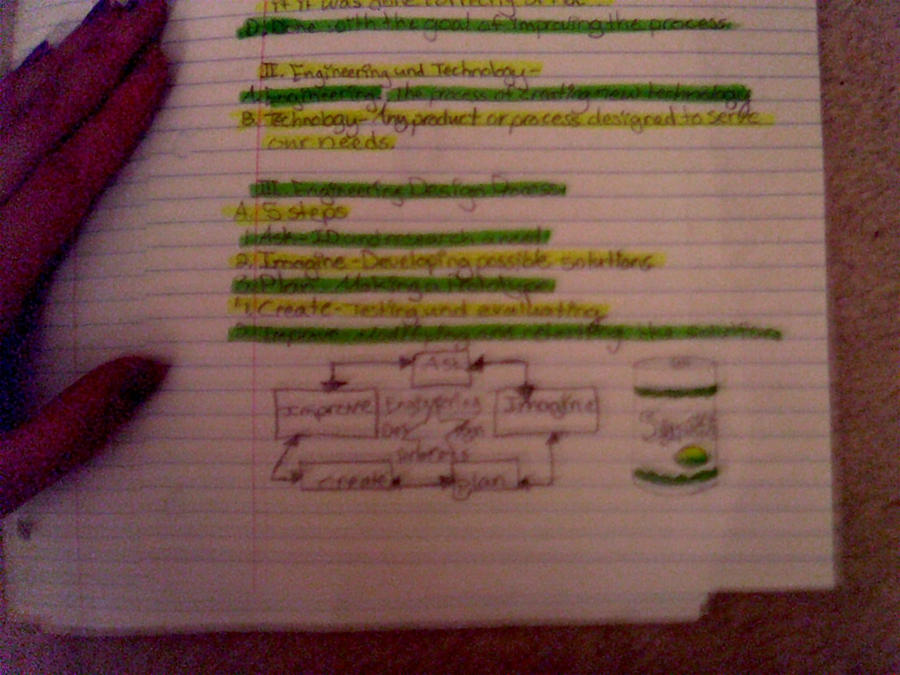 if it was done correctly or not
D. Done with the goal of improving the process.
II. Engineering and Technology-
A. Engineering- the process of creating new technology
B. Technology- Any product or process designed to serve
our needs.
III. Engineering Design Process
A. 5 steps
1. Ask-ID and research a need
2. Imagine-Developing possible solutions
3. Plan- Making a Prototype
4. Create-Testing and evaluating
5. Improve the solution
Ask
Improve Engineering Imagine
Design
process
Create Plan